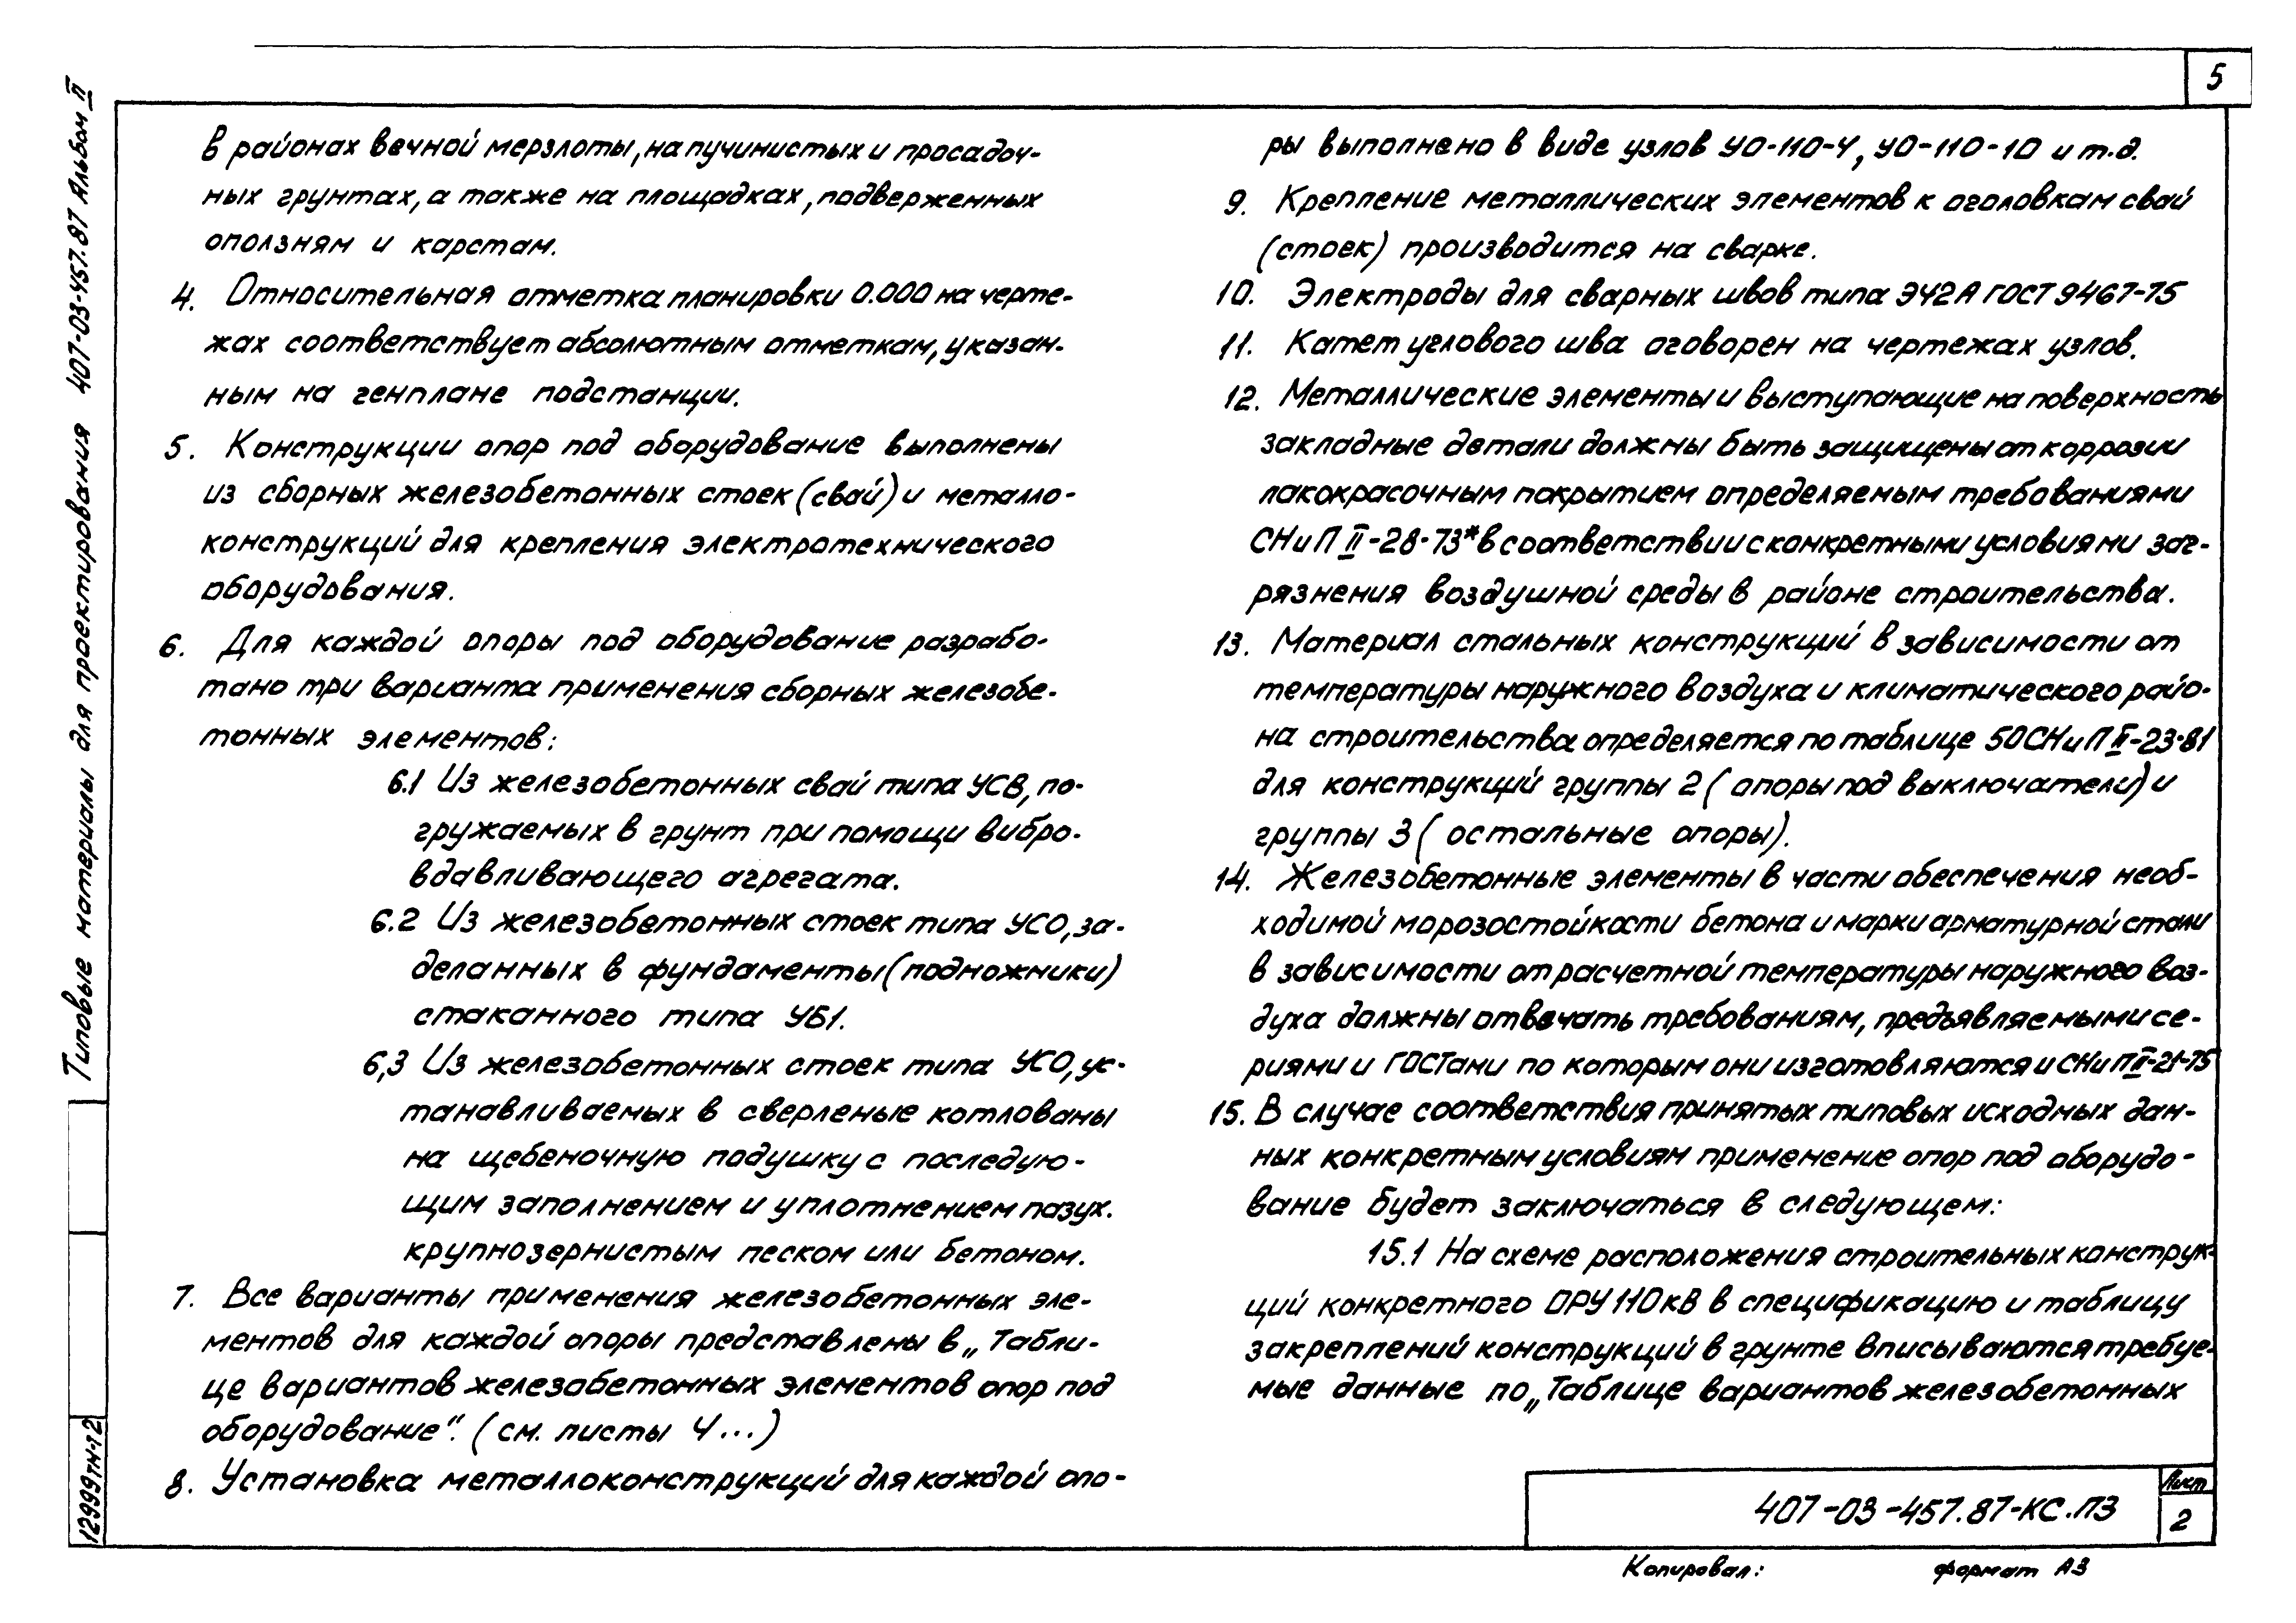 5
в районах вечной мерзлоты, на пучинистых и просадоч-
ных грунтах, а также на площадках, подверженных
оползням и карстам.
4. Относительная отметка планировки 0.000 на черте-
жах соответствует абсолютным отметкам, указан-
ным на генплане подстанции.
5. Конструкции опор под оборудование выполнены
из сборных железобетонных стоек (свай) и металло-
конструкций для крепления электротехнического
оборудования.
6. Для каждой опоры под оборудование разрабо-
тано три варианта применения сборных железобе-
тонных элементов:
6.1 Из железобетонных свай типа УСВ, по-
гружаемых в грунт при помощи вибро-
вдавливающего агрегата.
6.2 Из железобетонных стоек типа УСО, за-
деланных в фундаменты (подножники)
стаканного типа УБ1.
6,3 Из железобетонных стоек типа УСО, ус-
танавливаемых в сверленые котлованы
на щебеночную подушку с последую-
щим заполнением и уплотнением пазух.
крупнозернистым песком или бетоном.
7. Все варианты применения железобетонных эле-
ментов для каждой опоры представлены в „Табли-
це вариантов железобетонных элементов опор под
оборудование“. (см. листы 4...)
8. Установка металлоконструкций для каждой опо-
ры выполнено в виде узлов УО-110-4, УО-110-10 и т.д.
9. Крепление металлических элементов к оголовкам свай
(стоек) производится на сварке.
10. Электроды для сварных швов типа Э42А ГОСТ 9467-75
11. Катет углового шва оговорен на чертежах узлов.
12. Металлические элементы и выступающие на поверхность
закладные детали должны быть защищены от коррозии
лакокрасочным покрытием определяемым требованиями
СНиП II-28-73* в соответствии с конкретными условиями заг-
рязнения воздушной среды в районе строительства.
13. Материал стальных конструкций в зависимости от
температуры наружного воздуха и климатического райо-
на строительства определяется по таблице 50 СНиП II-23-81
для конструкций группы 2 (опоры под выключатели) и
группы 3 (остальные опоры).
14. Железобетонные элементы в части обеспечения необ-
ходимой морозостойкости бетона и марки арматурной стали
в зависимости от расчетной температуры наружного воз-
духа должны отвечать требованиям, предъявляемыми се-
риями и ГОСТами по которым они изготовляются и СНиП II-21-75
15. В случае соответствия принятых типовых исходных дан-
ных конкретным условиям применение опор под оборудо-
вание будет заключаться в следующем:
15.1 На схеме расположения строительных конструк-
ций конкретного ОРУ 110кВ в спецификацию и таблицу
закреплений конструкций в грунте вписываются требуе-
мые данные по „Таблице вариантов железобетонных
Типовые материалы для проектирования 407-03-457.87 Альбом II
12999тм-т2
407-03-457.87-КС.ПЗ
Лист
2
Копировал:
формат А3